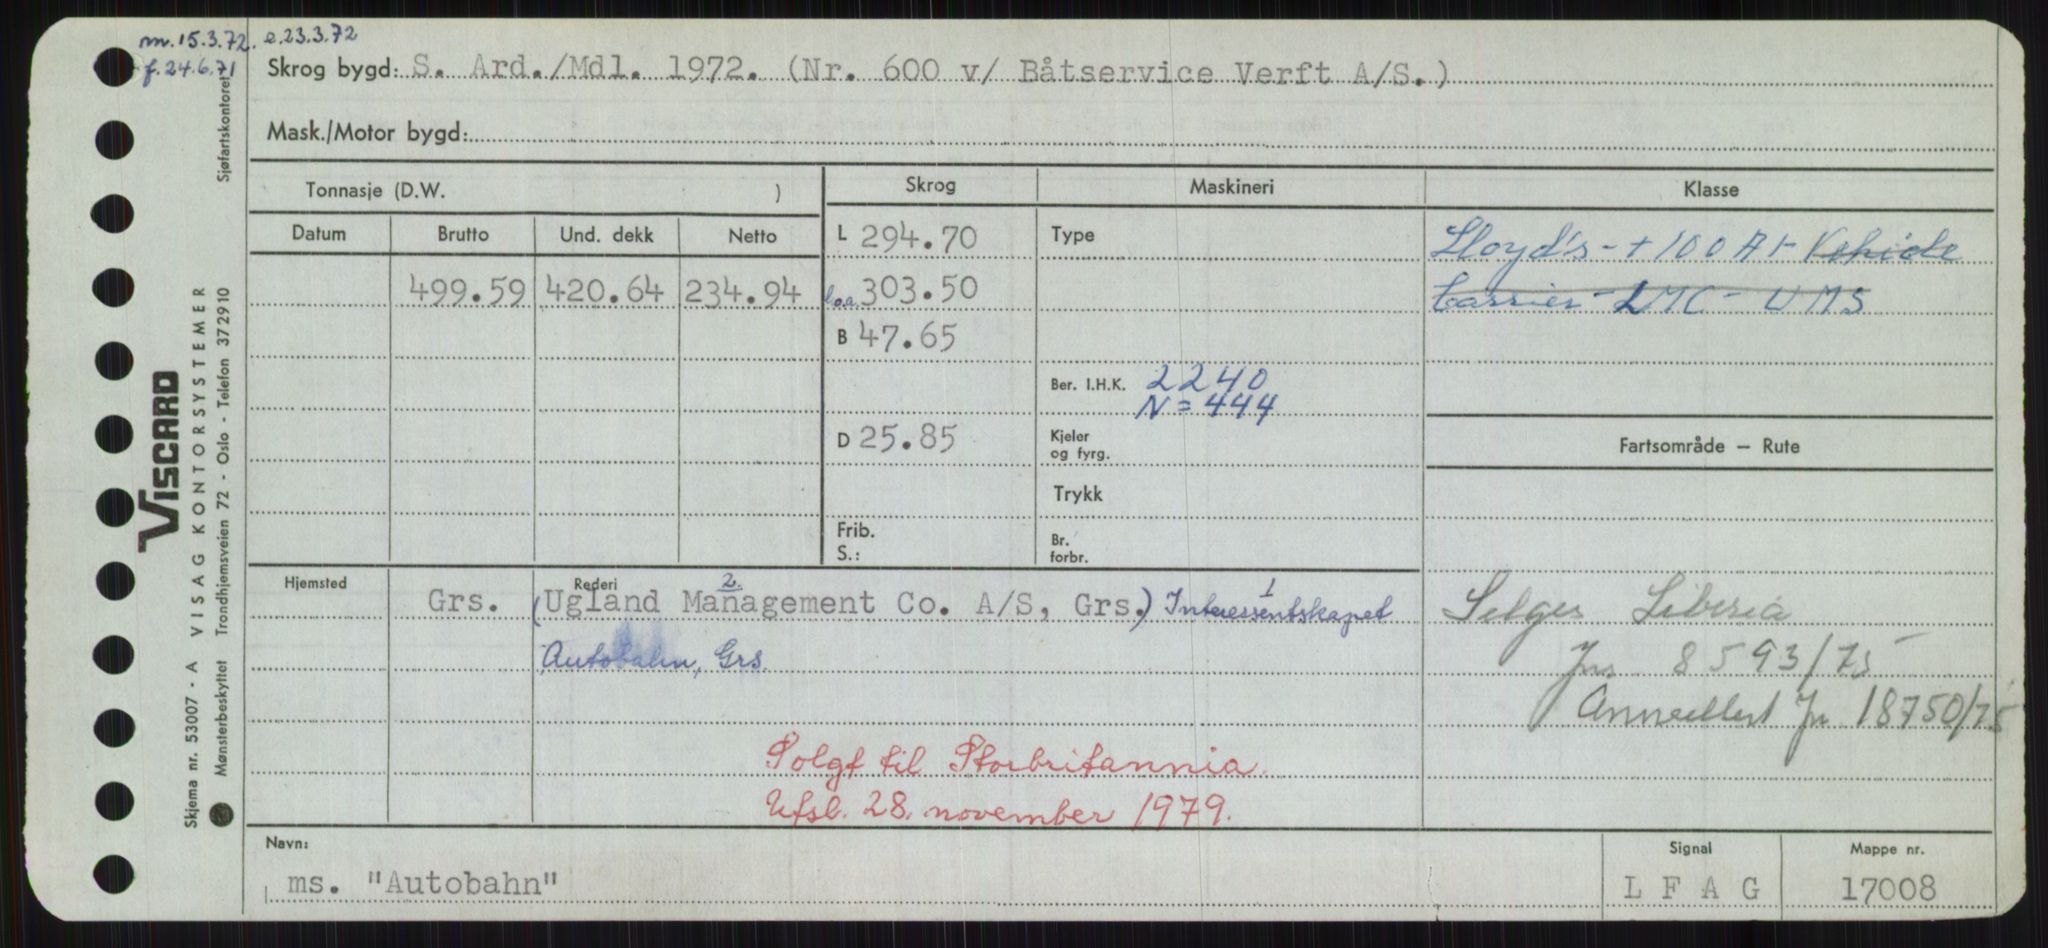 m. 15.3.72. e. 23.3.72
f. 24.6.71
Skrog bygd: S. Ard./Mdl. 1972. (Nr. 600 v/ Båtservice Verft A/S.)
Mask./Motor bygd:
Sjøfartskontoret
Tonnasje (D.W. )
Skrog
Maskineri
Klasse
Datum Brutto Und. dekk Netto
499.59 420.64 234.94
L 294.70
loa. 303.50
B 47.65
D 25.85
Frib.
S.:
Type
Ber. I.H.K. 2240
N = 444
Kjeler
og fyrg.
Trykk
Br.
forbr.
Lloyd's - + 100 A1 - Vehicle
Carrier - LMC - UMS
Fartsområde — Rute
Selges Liberia
Jnr. 8593/75
Annullert Jnr 18750/75
Hjemsted
Rederi
Grs. (Ugland Management Co. A/S, Grs.) 2. Interessentskapet 1
Autobahn, Grs.
Solgt til Storbritannia.
Utsl. 28. november 1979.
Navn:
ms. "Autobahn"
Signal
L F A G
Mappe nr.
17008
VISCARD
Skjema nr. 53007 - A VISAG KONTORSYSTEMER
Mønsterbeskyttet Trondhjemsveien 72 - Oslo - Telefon 37 29 10